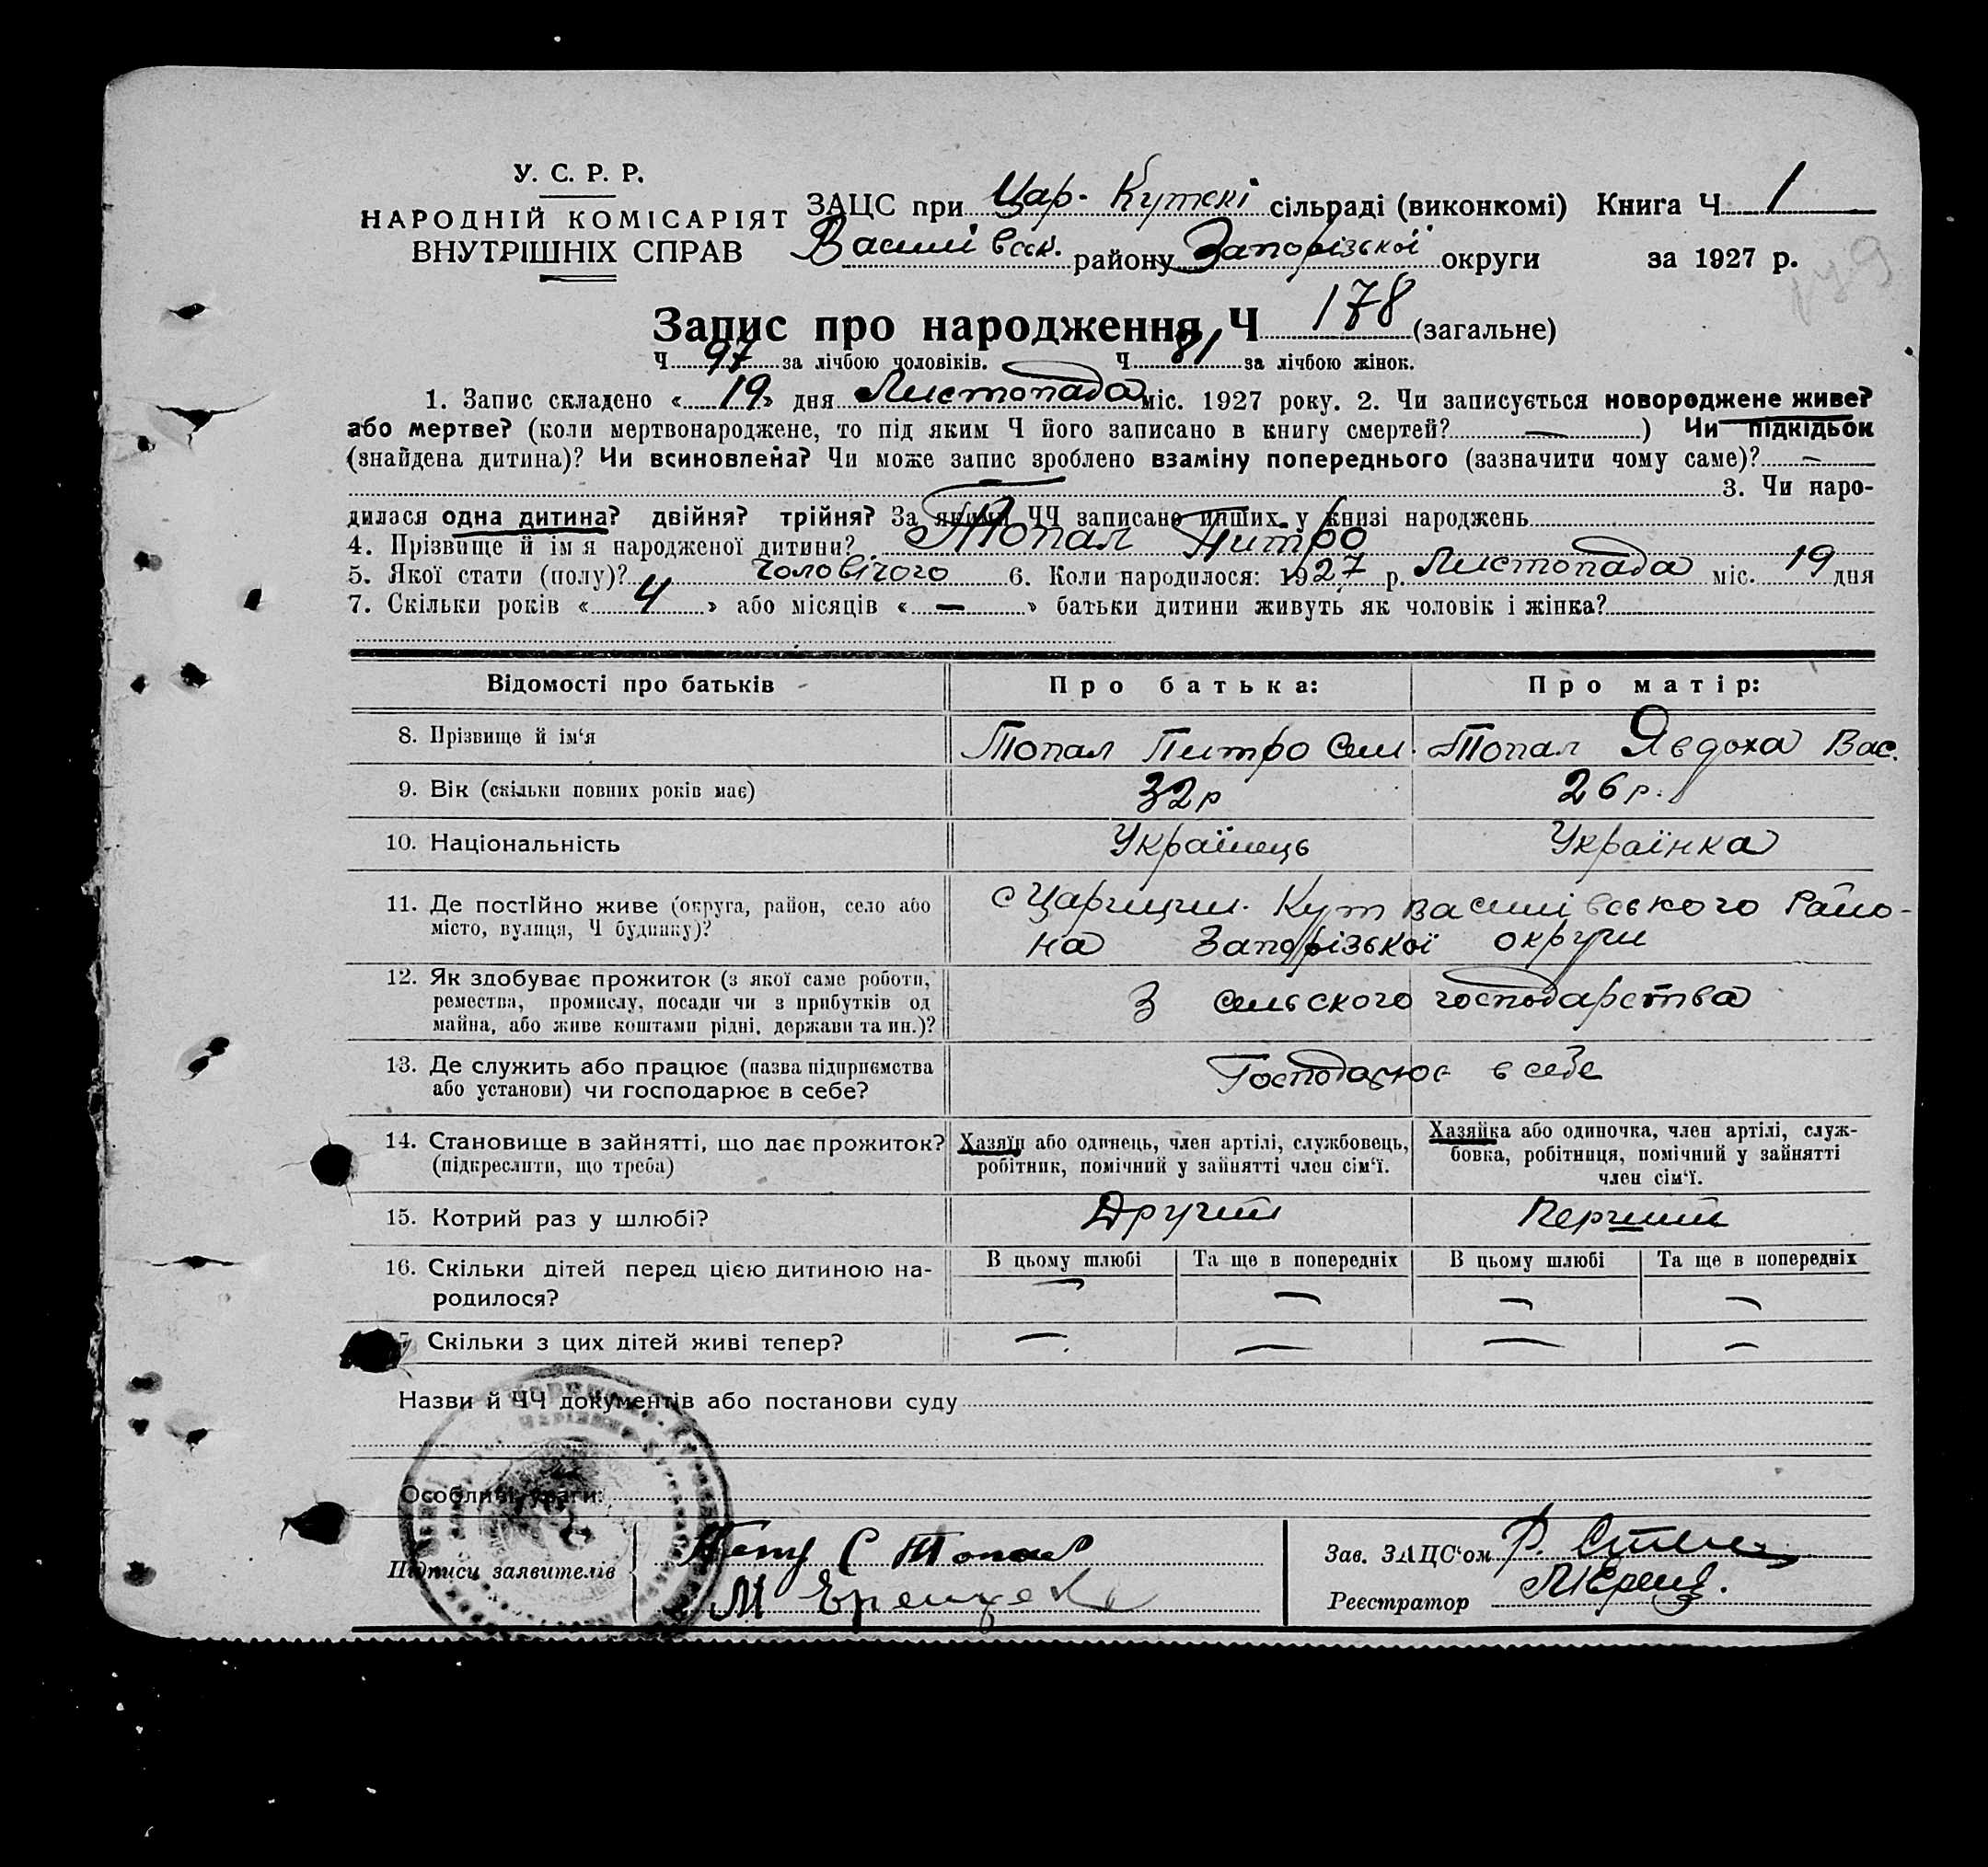 У. С. Р. Р.
НАРОДНІЙ КОМІСАРІЯТ
ВНУТРІШНІХ СПРАВ
ЗАЦС при Цар-Кутскі сільраді (виконкомі) Книга Ч 1
Василівськ. району Запорізької округи за 1927 р.
Запис про народження Ч 178 (загальне)
Ч 97 за лічбою чоловіків. Ч 81 за лічбою жінок.
1. Запис складено «19» дня Листопада міс. 1927 року. 2. Чи записується новороджене живе?
або мертве? (коли мертвонароджене, то під яким Ч його записано в книгу смертей? —) Чи підкідьок
(знайдена дитина)? Чи всиновлена? Чи може запис зроблено взаміну попереднього (зазначити чому саме)? —
— 3. Чи наро-
дилася одна дитина? двійня? трійня? За якими ЧЧ записано инших у книзі народжень
4. Прізвище й ім я народженої дитини? Топал Питро
5. Якої стати (полу)? чоловічого 6. Коли народилося: 1927 р. Листопада міс. 19 дня
7. Скільки років «4» або місяців «—» батьки дитини живуть як чоловік і жінка?
Відомості про батьків Про батька: Про матір:
8. Прізвище й ім‘я Топал Питро Сем. Топал Явдоха Вас.
9. Вік (скільки повних років має) 32р 26р.
10. Національність Українець Українка
11. Де постійно живе (округа, район, село або
місто, вулиця, Ч будинку)?
с Царицин. Кут Василівського Райо-
на Запорізької округи
12. Як здобуває прожиток (з якої саме роботи,
ремества, промислу, посади чи з прибутків од
майна, або живе коштами рідні, держави та ин.)?
З сельского господарства
13. Де служить або працює (назва підприємства
або установи) чи господарює в себе?
Господарює в себе
14. Становище в зайнятті, що дає прожиток?
(підкреслити, що треба)
Хазяїн або одинець, член артілі, службовець,
робітник, помічний у зайнятті член сім‘ї.
Хазяйка або одиночка, член артілі, служ-
бовка, робітниця, помічний у зайнятті
член сім‘ї.
15. Котрий раз у шлюбі? Другий Перший
16. Скільки дітей перед цією дитиною на-
родилося?
В цьому шлюбі Та ще в попередніх В цьому шлюбі Та ще в попередніх
— — — —
Скільки з цих дітей живі тепер? — — — —
Назви й ЧЧ документів або постанови суду
Особливі уваги:
Підписи заявителів
С Топал
М
Зав. ЗАЦС‘ом Р.
Реєстратор